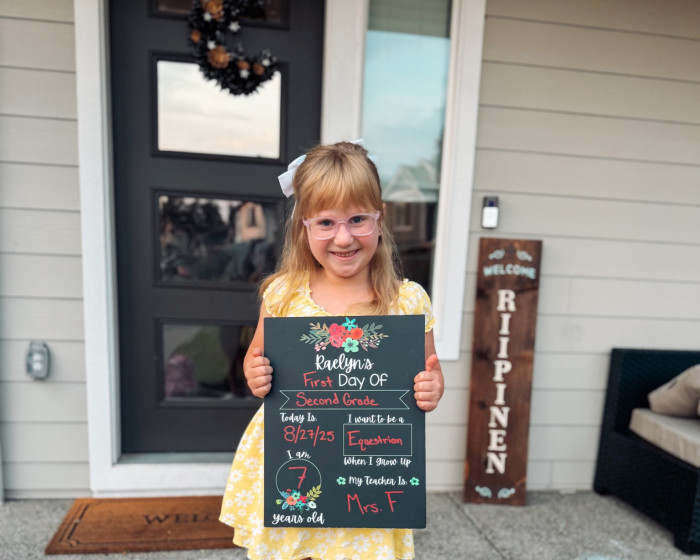 Raelyn's
First Day Of
Second Grade
Today Is
8/27/25
I want to be a
Equestrian
When I Grow Up
I am
7
years old
My Teacher Is
Mrs. F
WELCOME
RIIPINEN
WEL